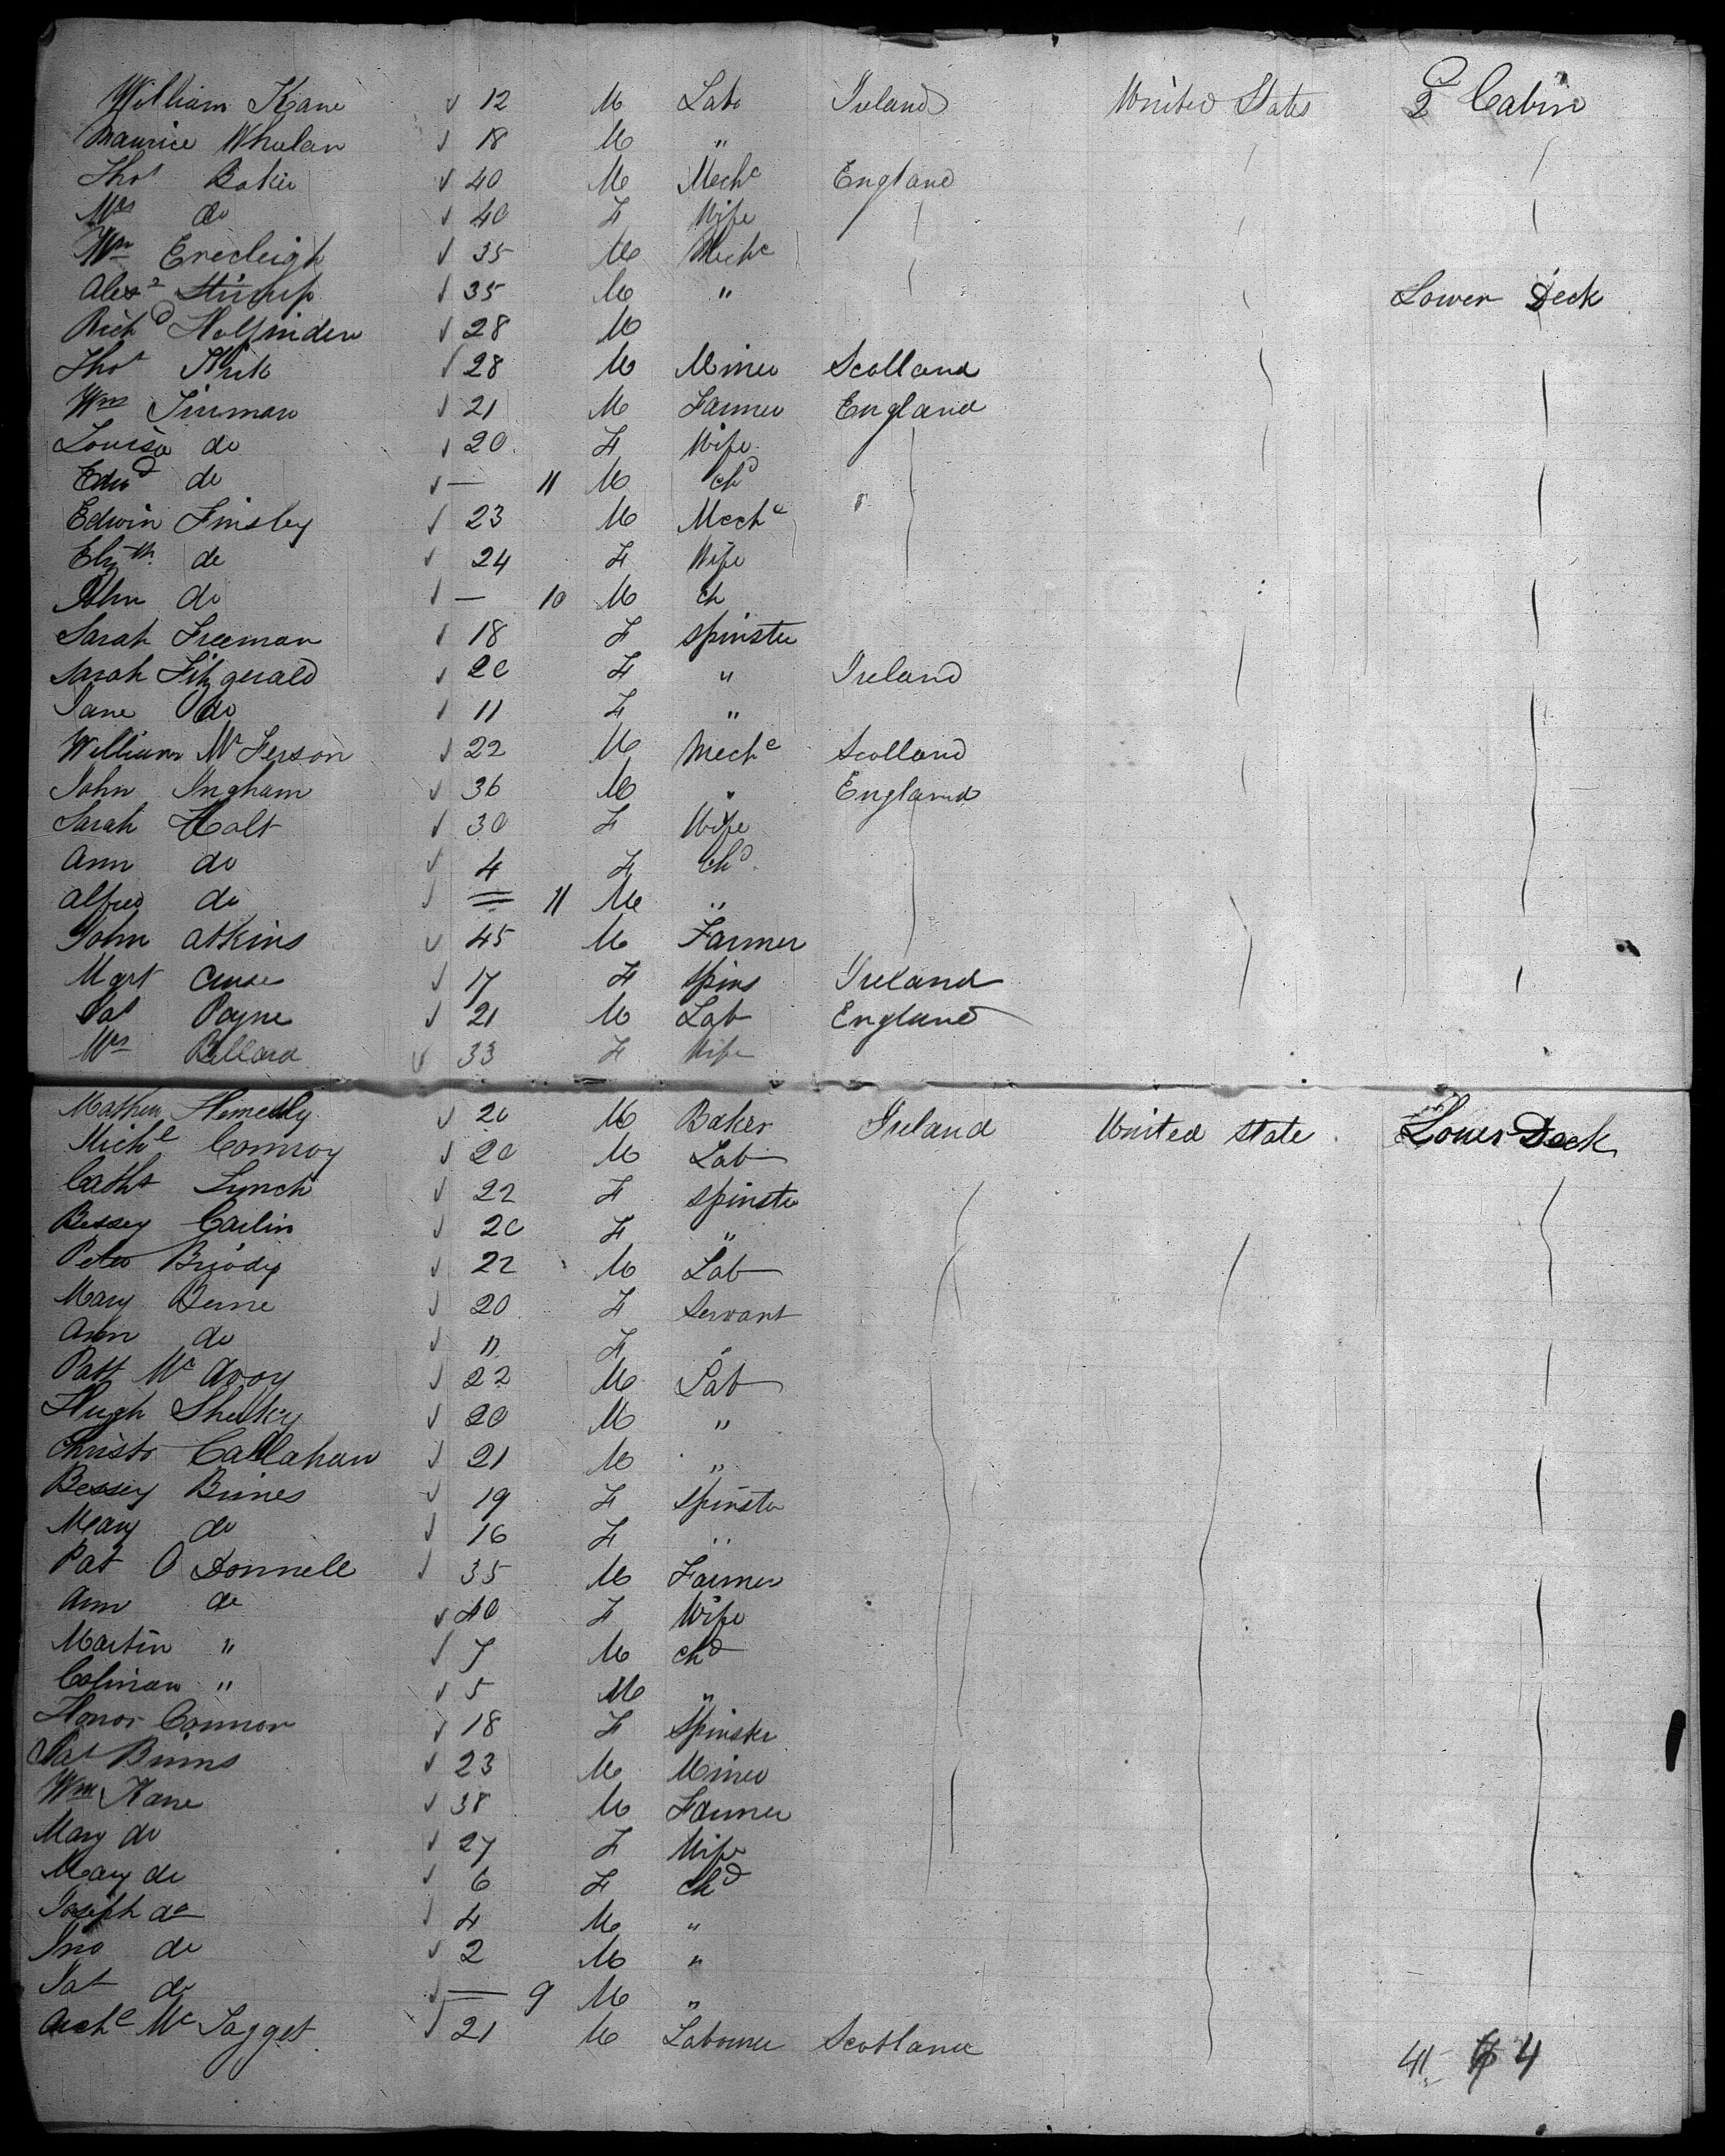 William Kane 12 M Lab Ireland United States 2 Cabin
Maurice Whelan 18 M "
Thos Baker 40 M Mechc England
Mrs do 40 F Wife
Wm 35 M Mechc
Alexr Stirrup 35 M " Lower Deck
Richd 28 M
Thos Kirk 28 M Miner Scotland
Wm 21 M Farmer England
Louisa do 20 F Wife
Edwd do — 11 M chd
Edwin Finsley 23 M Mechc
Elizth do 24 F Wife
John do — 10 M ch
Sarah Freeman 18 F spinster
Sarah Fitzgerald 20 F " Ireland
Jane do 11 F "
William Mc Ferson 22 M Mechc Scotland
John Ingham 36 M " England
Sarah Holt 30 F Wife
Ann do 4 F chd
Alfred do — 11 M "
John Atkins 45 M Farmer
Mgrt 17 F Spins Ireland
Pat Payne 21 M Lab England
Mrs 33 F Wife
Mathew 20 M Baker Ireland United State Lower Deck
Michl Conroy 20 M Lab
Catht Lynch 22 F spinster
Bessey Carlin 20 F "
Peter Briody 22 M Lab
Mary Berne 20 F Servant
Ann do 11 F
Patt Mc Avoy 22 M Lab
Hugh 20 M "
Christr Callahan 21 M "
Bessey Birnes 19 F spinster
Mary do 16 F "
Pat O Donnell 35 M Farmer
Ann do 40 F Wife
Martin " 7 M chd
Colman " 5 M "
Honor Connor 18 F Spinster
Pat Birns 23 M Miner
Wm Kane 38 M Farmer
Mary do 27 F Wife
Mary do 6 F chd
Joseph do 4 M "
Jno do 2 M "
Pat do — 9 M "
Archd Mc Tagget 21 M Labourer Scotland
41 4